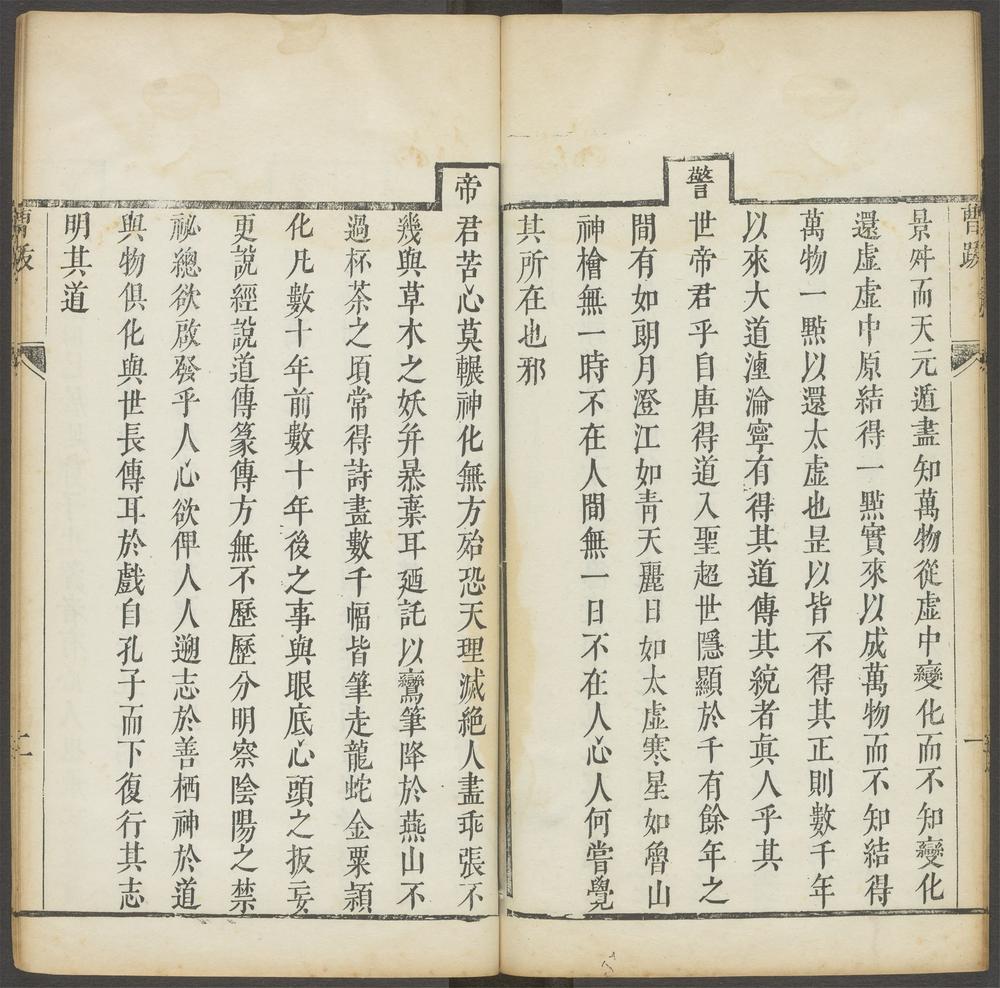 曹跋
一
景舛而天元遁盡知萬物從虛中變化而不知變化
還虛虛中原結得一點實來以成萬物而不知結得
萬物一點以還太虛也昰以皆不得其正則數千年
以來大道湮淪寧有得其道傳其統者眞人乎其
警
世帝君乎自唐得道入聖超世隱顯於千有餘年之
間有如朗月澄江如靑天麗日如太虛寒星如魯山
神檜無一時不在人間無一日不在人心人何嘗覺
其所在也邪
帝
君苦心莫輾神化無方殆恐天理滅絕人盡乖張不
幾與草木之妖弁暴棄耳廼託以鸞筆降於燕山不
過杯茶之頃常得詩畫數千幅皆筆走龍蛇金粟頴
化凡數十年前數十年後之事與眼底心頭之扳妄
更說經說道傳篆傳方無不歷歷分明察陰陽之禁
祕總欲啟發乎人心欲俾人人遡志於善栖神於道
與物俱化與世長傳耳於戲自孔子而下復行其志
明其道
二